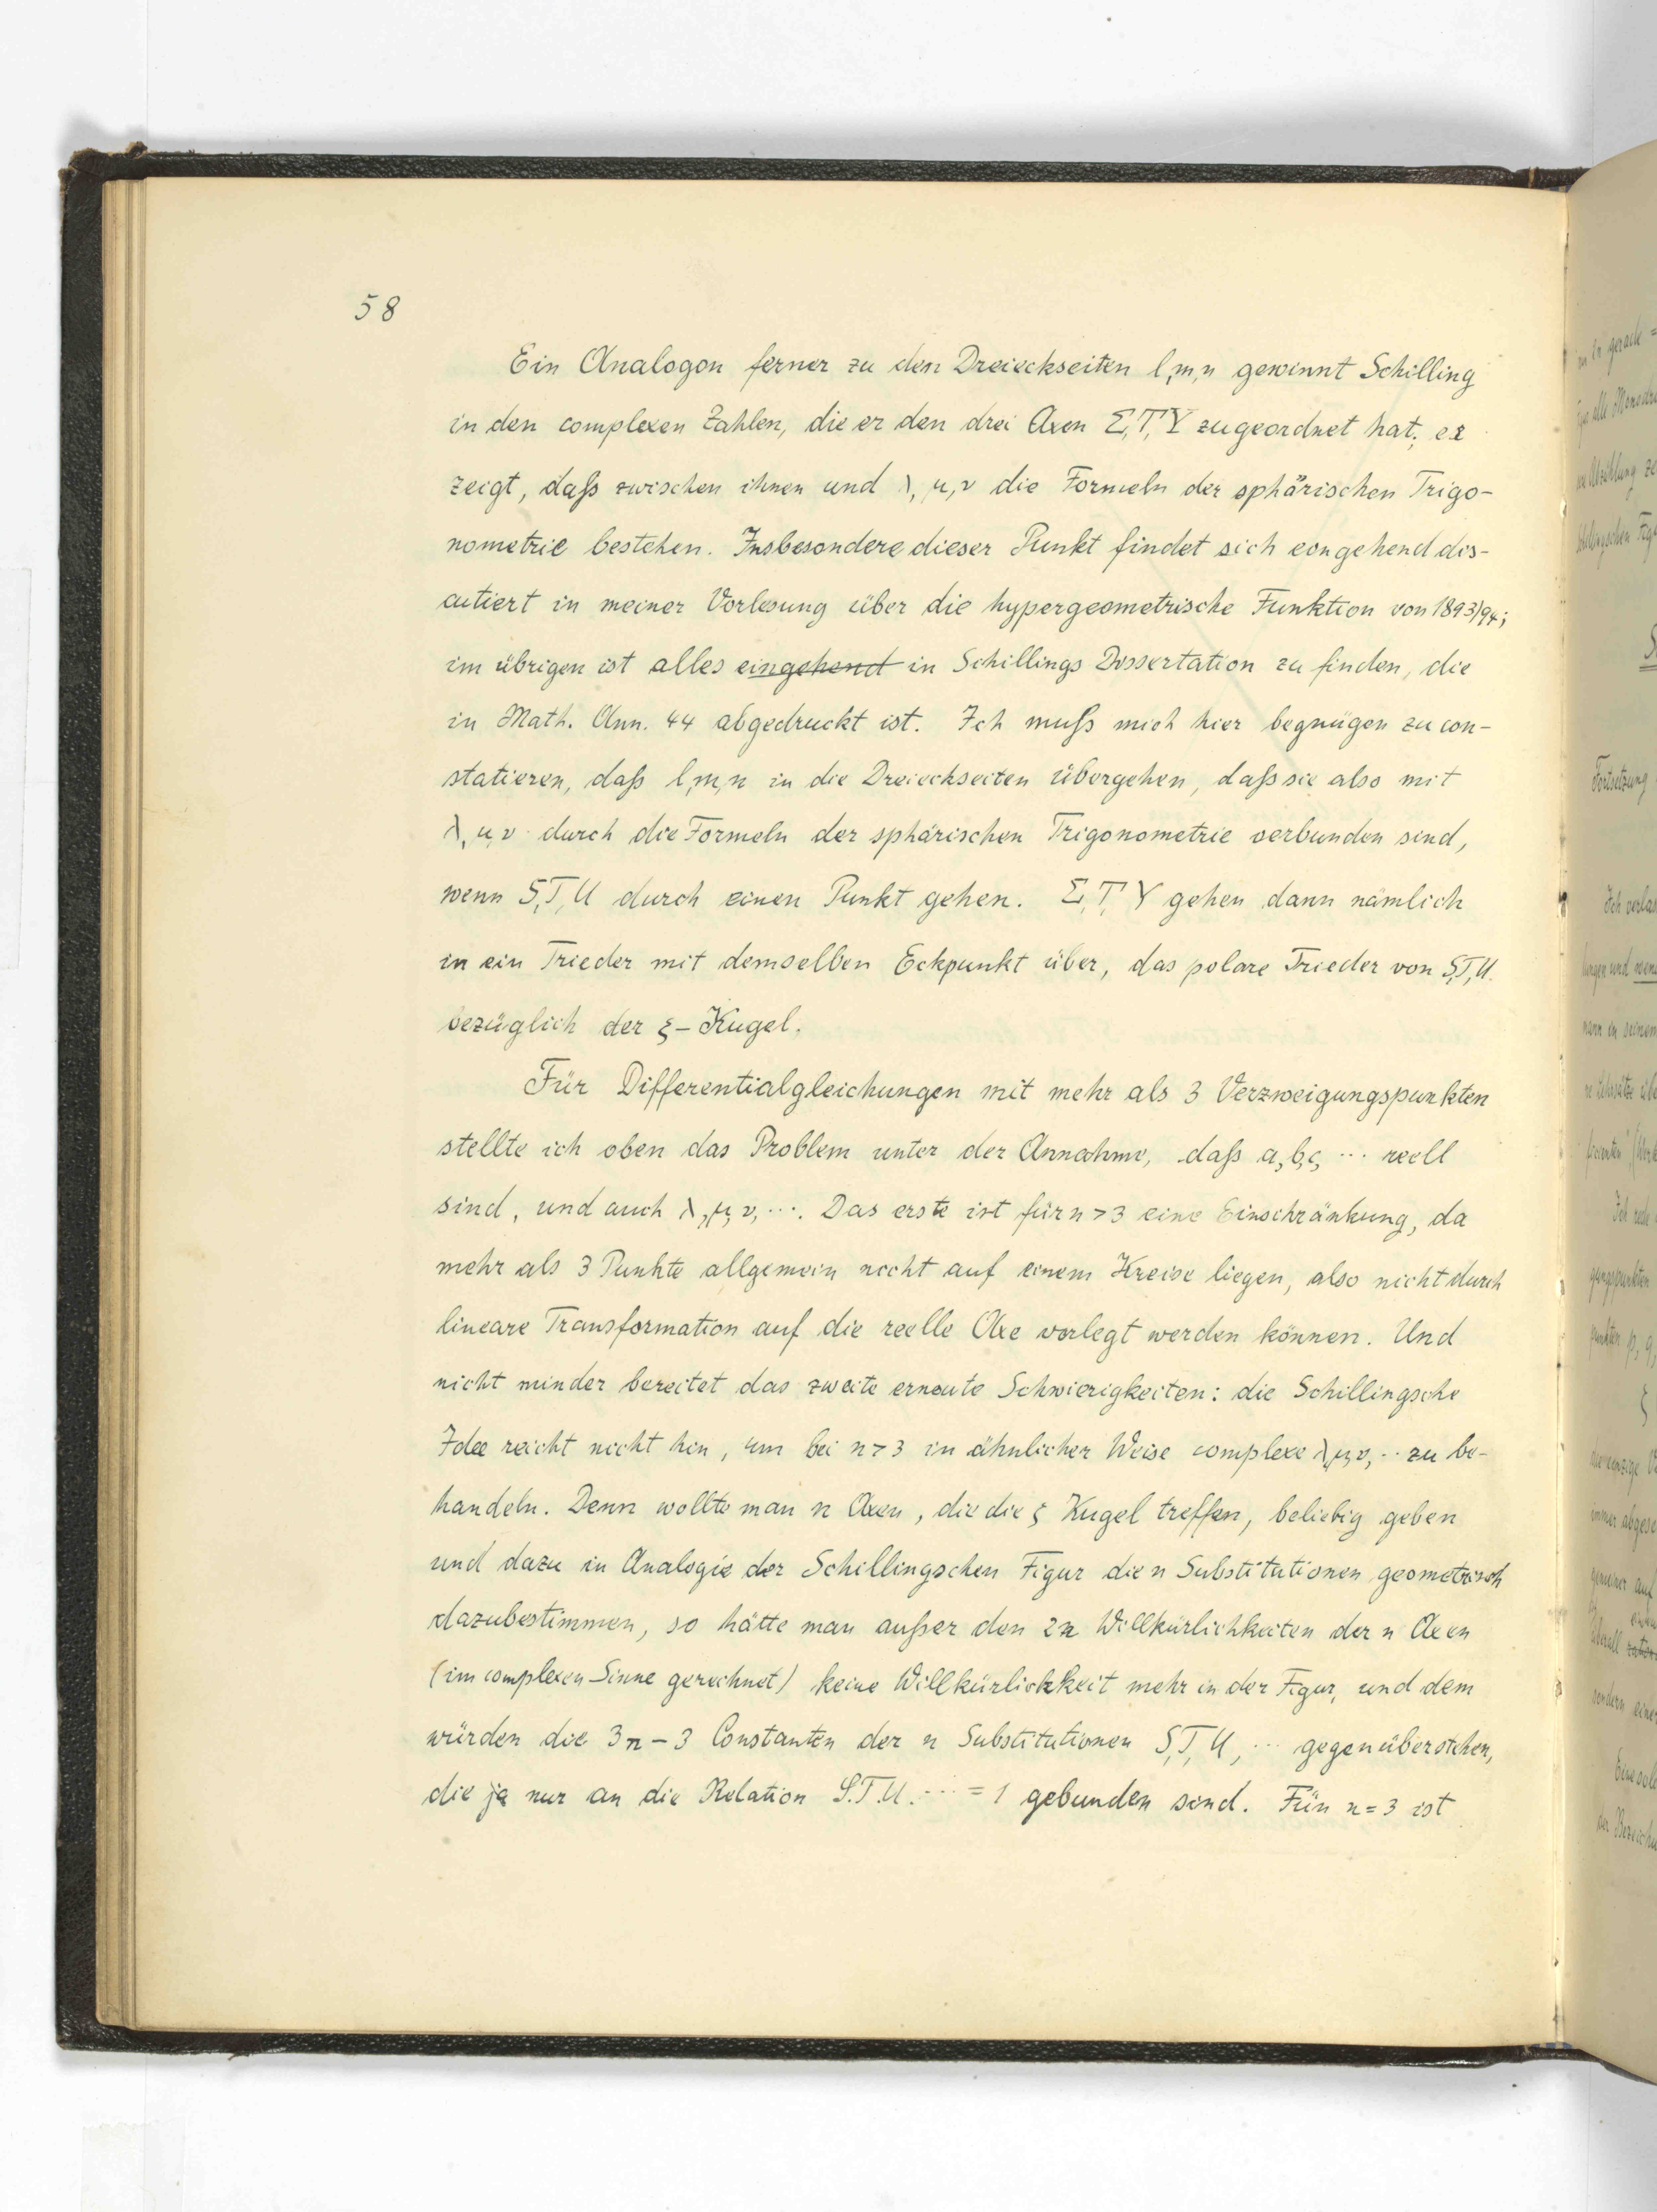 58
Ein Analogon ferner zu den Dreieckseiten l, m, n gewinnt Schilling
in den complexen Zahlen, die er den drei Axen Σ, T, Υ zugeordnet hat; er
zeigt, daß zwischen ihnen und λ, μ, ν die Formeln der sphärischen Trigo-
nometrie bestehen. Insbesondere dieser Punkt findet sich eingehend dis-
cutiert in meiner Vorlesung über die hypergeometrische Funktion von 1893/94;
im übrigen ist alles eingehend in Schillings Dissertation zu finden, die
in Math. Ann. 44 abgedruckt ist. Ich muß mich hier begnügen zu con-
statieren, daß l, m, n in die Dreieckseiten übergehen, daß sie also mit
λ, μ, ν durch die Formeln der sphärischen Trigonometrie verbunden sind,
wenn S, T, U durch einen Punkt gehen. Σ, T, Υ gehen dann nämlich
in ein Trieder mit demselben Eckpunkt über, das polare Trieder von S, T, U
bezüglich der ξ-Kugel.
Für Differentialgleichungen mit mehr als 3 Verzweigungspunkten
stellte ich oben das Problem unter der Annahme, daß a, b, c, ... reell
sind, und auch λ, μ, ν, .... Das erste ist für n > 3 eine Einschränkung, da
mehr als 3 Punkte allgemein nicht auf einem Kreise liegen, also nicht durch
lineare Transformation auf die reelle Axe verlegt werden können. Und
nicht minder bereitet das zweite erneute Schwierigkeiten: die Schillingsche
Idee reicht nicht hin, um bei n > 3 in ähnlicher Weise complexe λ, μ, ν, .. zu be-
handeln. Denn wollte man n Axen, die die ζ Kugel treffen, beliebig geben
und dazu in Analogie der Schillingschen Figur die n Substitutionen geometrisch
dazubestimmen, so hätte man außer den 2n Willkürlichkeiten der n Axen
(im complexen Sinne gerechnet) keine Willkürlichkeit mehr in der Figur, und dem
würden die 3n - 3 Constanten der n Substitutionen S, T, U, ... gegenüberstehen,
die ja nur an die Relation S.T.U. ... = 1 gebunden sind. Für n = 3 ist